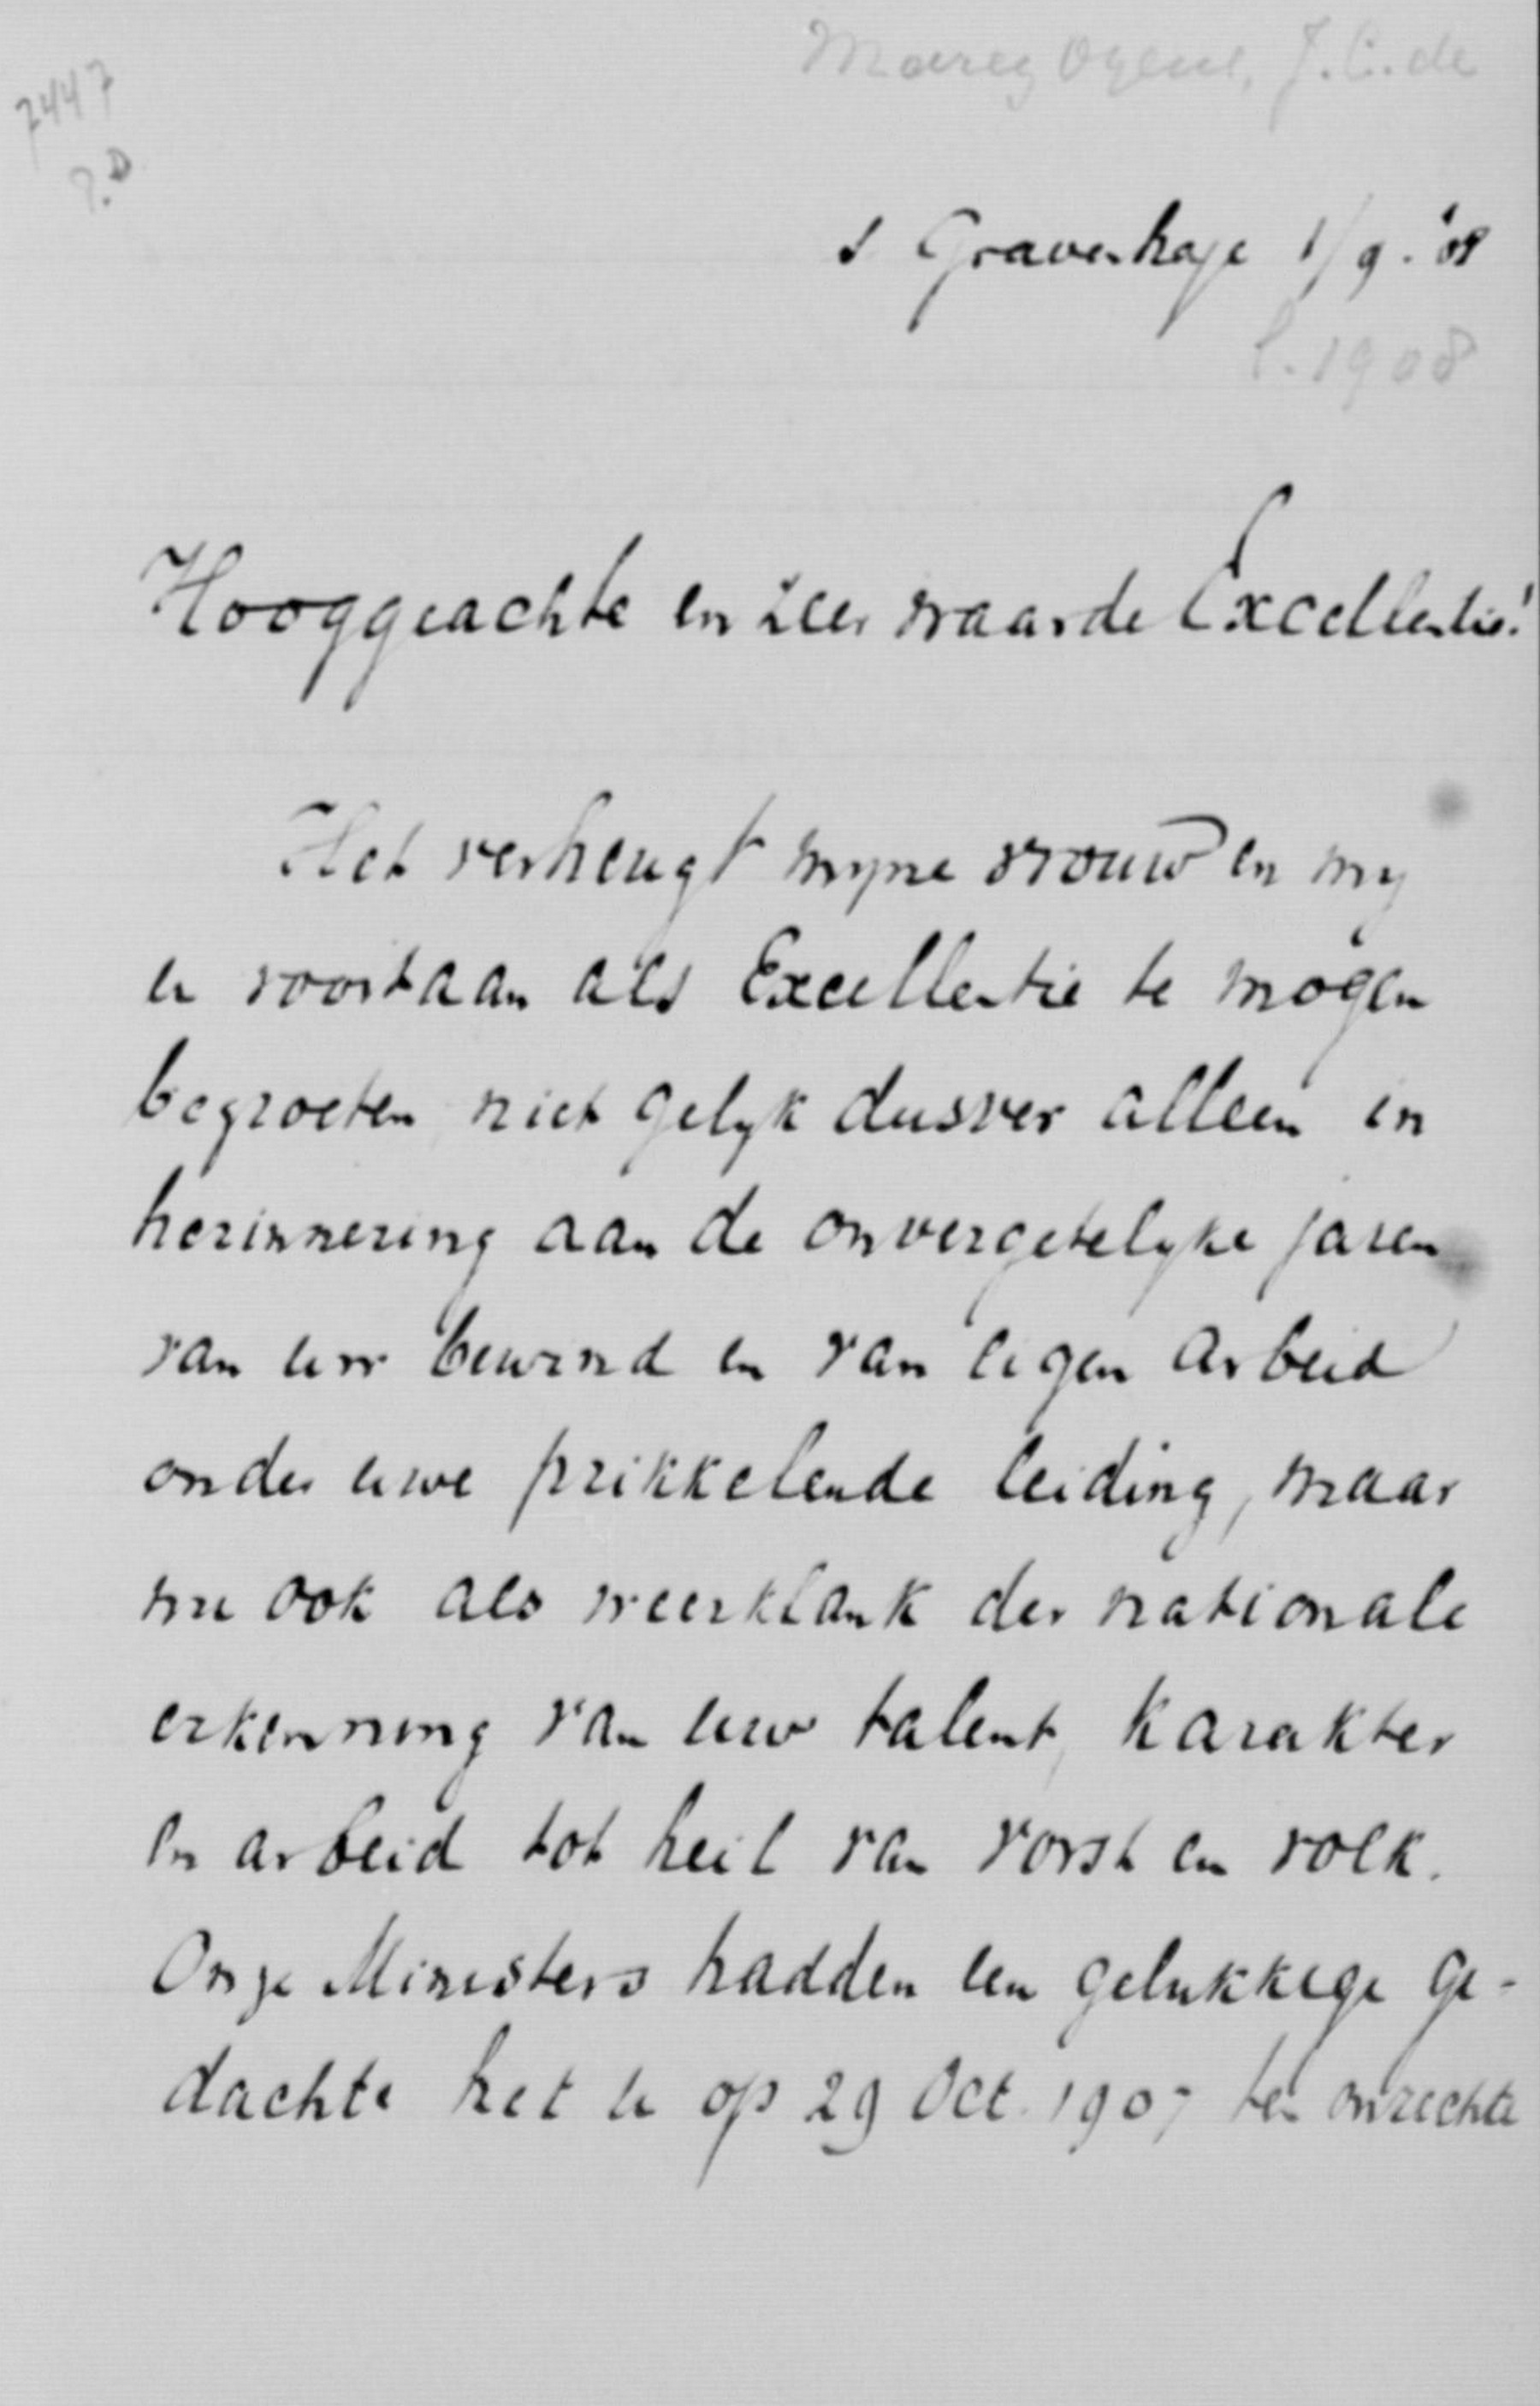 Marez Oyens, J. C. de
7447
P.D
s Gravenhage 1/9. '08
1908
Hooggeachte en zeer waarde Excellentie!
Het verheugt mijne vrouw en mij
U voortaan als Excellentie te mogen
begroeten niet gelijk dusver alleen in
herinnering aan de onvergetelijke jaren
van uw bewind en van eigen arbeid
onder uwe prikkelende leiding, maar
nu ook als weerklank der nationale
erkenning van uw talent, karakter
en arbeid tot heil van vorst en volk.
Onze Ministers hadden een gelukkige ge-
dachte het U op 29 Oct. 1907 ten onrechte